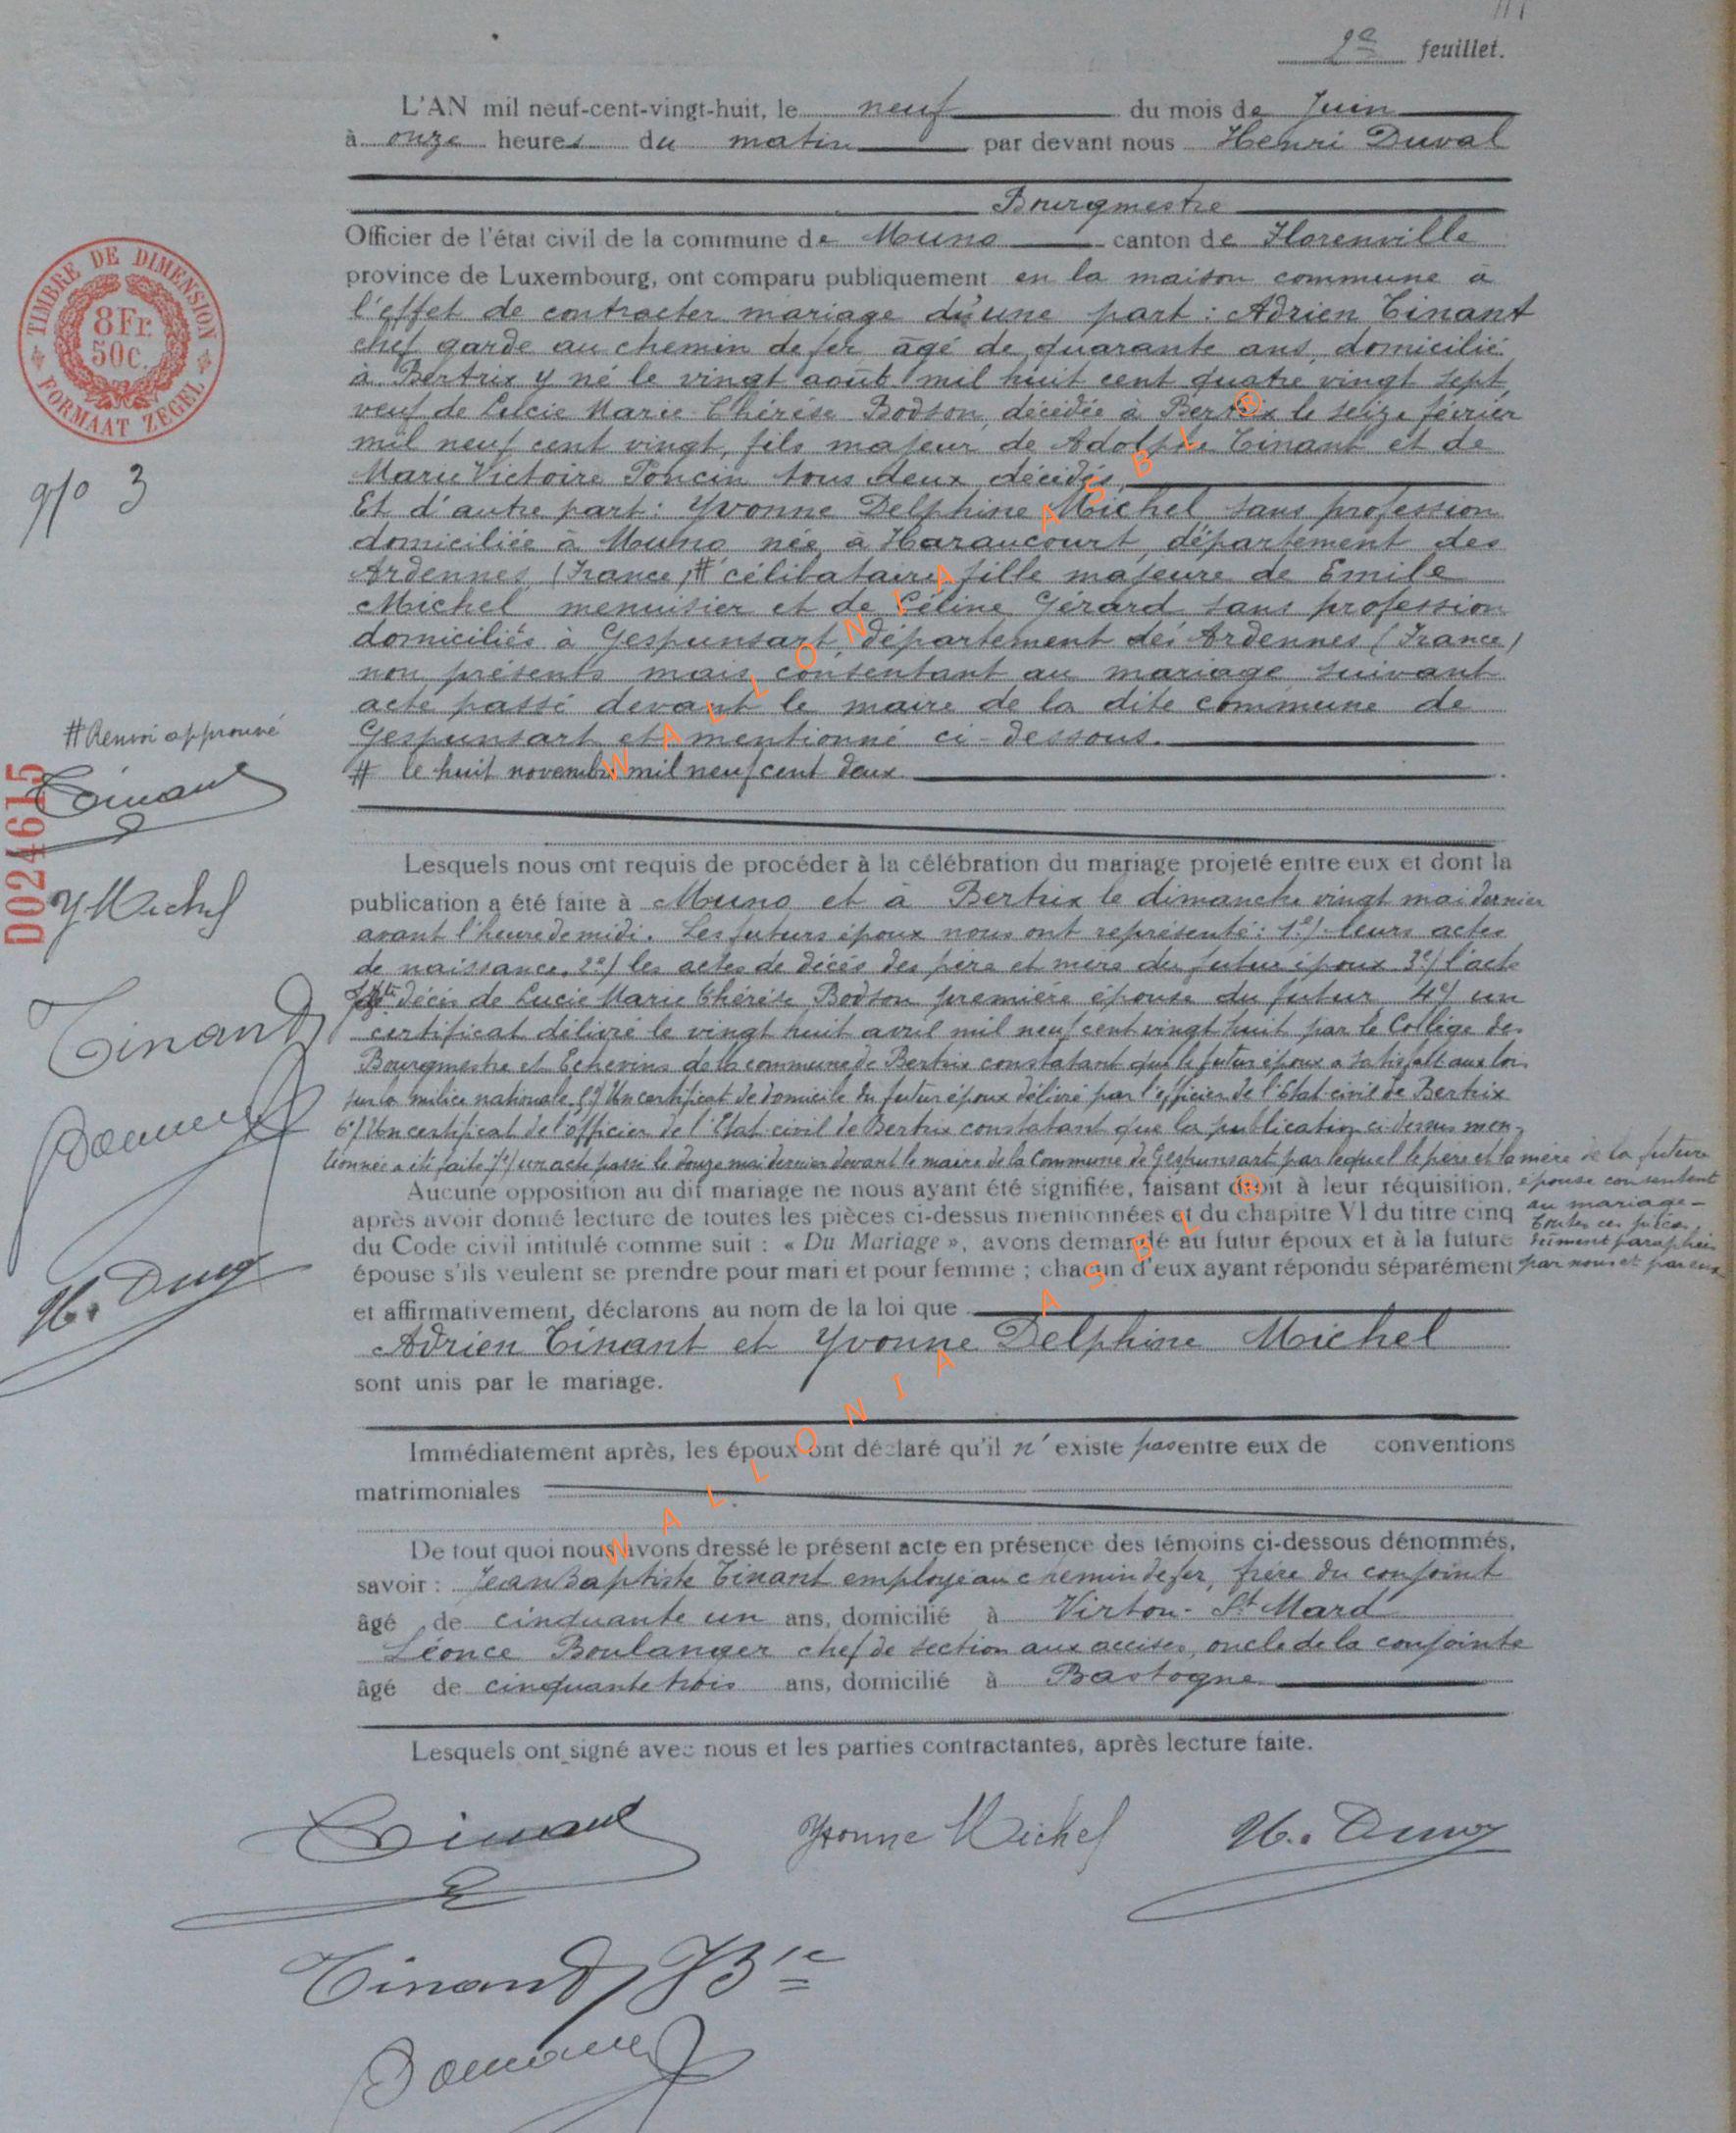 2e feuillet.
L'AN mil neuf-cent-vingt-huit, le neuf du mois de Juin
à onze heures du matin par devant nous Henri Duval
Bourgmestre
Officier de l'état civil de la commune de Muno canton de Florenville
province de Luxembourg, ont comparu publiquement en la maison commune à
l'effet de contracter mariage d'une part : Adrien Tinant
chef garde au chemin de fer âgé de quarante ans, domicilié
à Bertrix y né le vingt août mil huit cent quatre vingt sept
veuf de Lucie Marie Thérèse Bodson, décédée à Bertrix le seize février
mil neuf cent vingt, fils majeur de Adolphe Tinant et de
Marie Victoire Poncin tous deux décédés,
Et d'autre part : Yvonne Delphine Michel sans profession
domiciliée à Muno née à Haraucourt département des
Ardennes (France) # célibataire fille majeure de Emile
Michel menuisier et de Céline Gérard sans profession
domiciliés à Gespunsart département des Ardennes (France)
non présents mais consentant au mariage suivant
acte passé devant le maire de la dite commune de
Gespunsart et mentionné ci-dessous.
# le huit novembre mil neuf cent deux
Lesquels nous ont requis de procéder à la célébration du mariage projeté entre eux et dont la
publication a été faite à Muno et à Bertrix le dimanche vingt mai dernier
avant l'heure de midi. Les futurs époux nous ont représenté : 1°) leurs actes
de naissance. 2°) les actes de décès des père et mère du futur époux 3°) l'acte
de décès de Lucie Marie Thérèse Bodson première épouse du futur 4°) un
certificat délivré le vingt huit avril mil neuf cent vingt huit par le Collège des
Bourgmestre et Echevins de la commune de Bertrix constatant que le futur époux a satisfait aux lois
sur la milice nationale 5°) Un certificat de domicile du futur époux délivré par l'officier de l'Etat-civil de Bertrix
6°) Un certificat de l'officier de l'Etat civil de Bertrix constatant que la publication ci-dessus men-
tionnée a été faite 7°) un acte passé le douze mai dernier devant le maire de la Commune de Gespunsart par lequel le père et la mère de la future
épouse consentent
au mariage -
Toutes ces pièces
par nous et par eux
Aucune opposition au dit mariage ne nous ayant été signifiée, faisant droit à leur réquisition.
après avoir donné lecture de toutes les pièces ci-dessus mentionnées et du chapitre VI du titre cinq
du Code civil intitulé comme suit : « Du Mariage », avons demandé au futur époux et à la future
épouse s'ils veulent se prendre pour mari et pour femme ; chacun d'eux ayant répondu séparément
et affirmativement, déclarons au nom de la loi que
Adrien Tinant et Yvonne Delphine Michel
sont unis par le mariage.
Immédiatement après, les époux ont déclaré qu'il n'existe pas entre eux de conventions
matrimoniales
De tout quoi nous avons dressé le présent acte en présence des témoins ci-dessous dénommés,
savoir : Jean Baptiste Tinant employé au chemin de fer, frère du conjoint
âgé de cinquante un ans, domicilié à Virton - St Mard
Léonce Boulanger chef de section aux accises, oncle de la conjointe
âgé de cinquante trois ans, domicilié à Bastogne
Lesquels ont signé avec nous et les parties contractantes, après lecture faite.
Tinant
Yvonne Michel
H. Duval
Tinant JBte
TIMBRE DE DIMENSION
8Fr.
50c.
FORMAAT ZEGEL
N° 3
# Renvoi approuvé
Tinant
D024615
Y Michel
Tinant
H. Duval
WALLONIA ASBL ®
WALLONIA ASBL ®